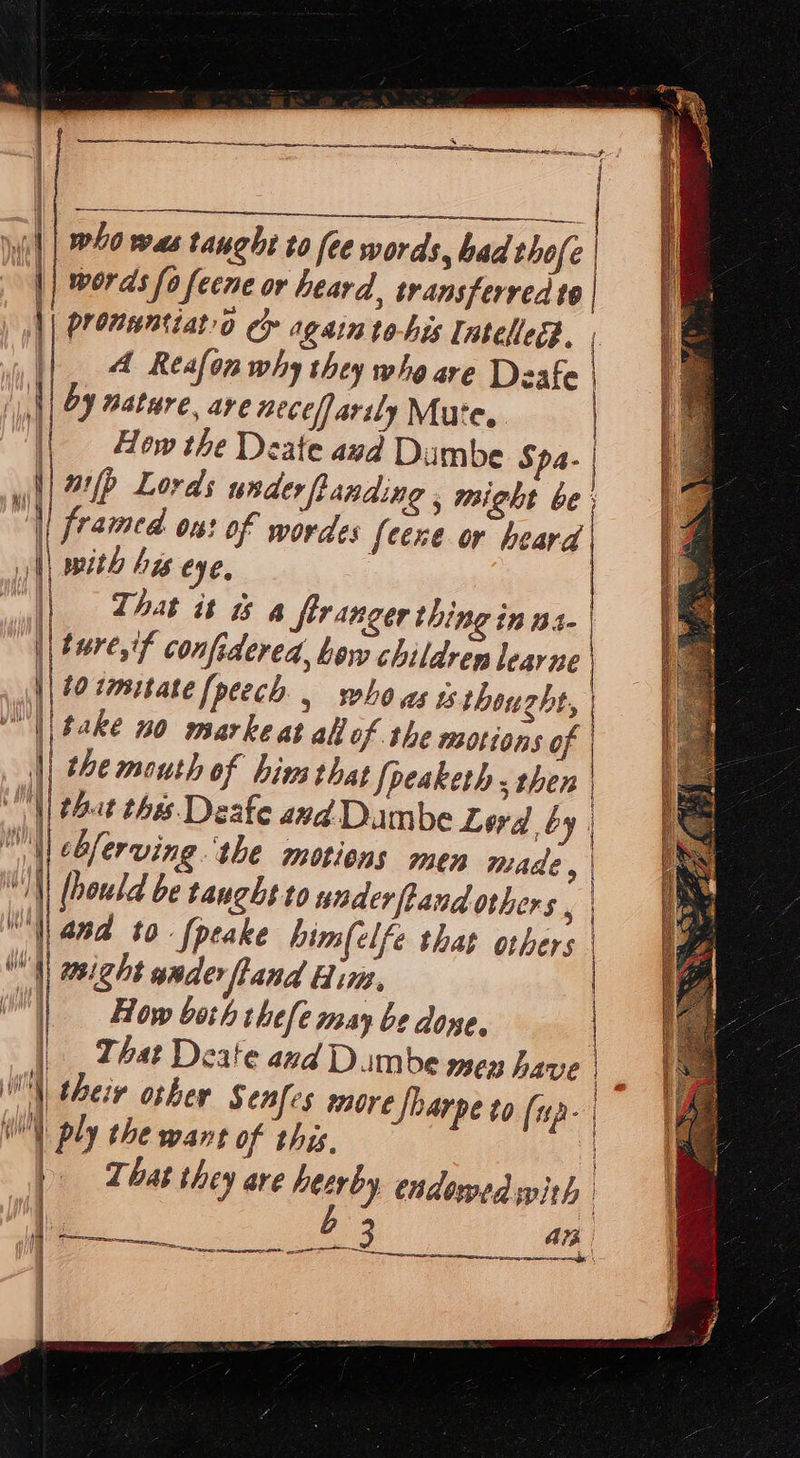 who was taught to ſee words, had thoſe
words ſo ſeene or heard, transferred to
pronuntiatiō & again to his Intellect.
A Reaſon why they who are Deafe
by nature, are neceſſarily Mute.
How the Deafe and Dumbe Spa-
niſh Lords underſtanding, might be
framed out of wordes ſeene or heard
with his eye.
That it is a ſtranger thing in na-
ture, if conſidered, how children learne
to imitate ſpeech, who as is thought,
take no marke at all of the motions of
the mouth of him that ſpeaketh; then
that this Deafe and Dumbe Lord, by
obſerving the motions men made,
ſhould be taught to underſtand others,
and to ſpeake himſelfe that others
might underſtand Him.
How both theſe may be done.
That Deafe and Dumbe men have
their other Senſes more ſharpe to ſup-
ply the want of this.
That they are heerby endowed with
b 3 an